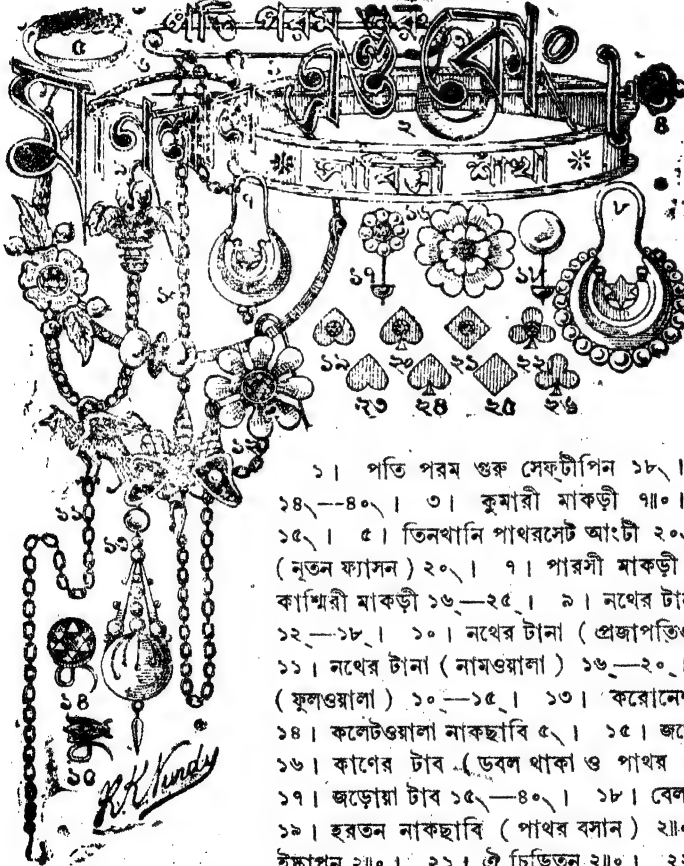 পতি পরম গুরু
৫
২
৪
সাবিত্রী শাঁখা
৭
৮
১৬
১৭
১৮
১৯ ২০ ২১ ২২
২৩ ২৪ ২৫ ২৬
১৪
R.K. Nundy
১। পতি পরম গুরু সেফ্‌টীপিন ১৮৲।
১৪৲—৪০৲। ৩। কুমারী মাকড়ী ৭॥০।
১৫৲। ৫। তিনখানি পাথরসেট আংটী ২০৲
(নূতন ফ্যাসন) ২০৲। ৭। পারসী মাকড়ী
কাশ্মিরী মাকড়ী ১৬৲—২৫৲। ৯। নথের টা
১২৲—১৮৲। ১০। নথের টানা (প্রজাপতি
১১। নথের টানা (নামওয়ালা) ১৬৲—২০৲
(ফুলওয়ালা) ১০৲—১৫৲। ১৩। করোনে
১৪। কলেটওয়ালা নাকছাবি ৫৲। ১৫। জ
১৬। কাণের টাব (ডবল থাকা ও পাথর
১৭। জড়োয়া টাব ১৫৲—৪০৲। ১৮। বেল
১৯। হরতন নাকছাবি (পাথর বসান) ২॥০
ইস্কাপন ২॥০। ২১। ঐ চিড়িতন ২॥০। ২